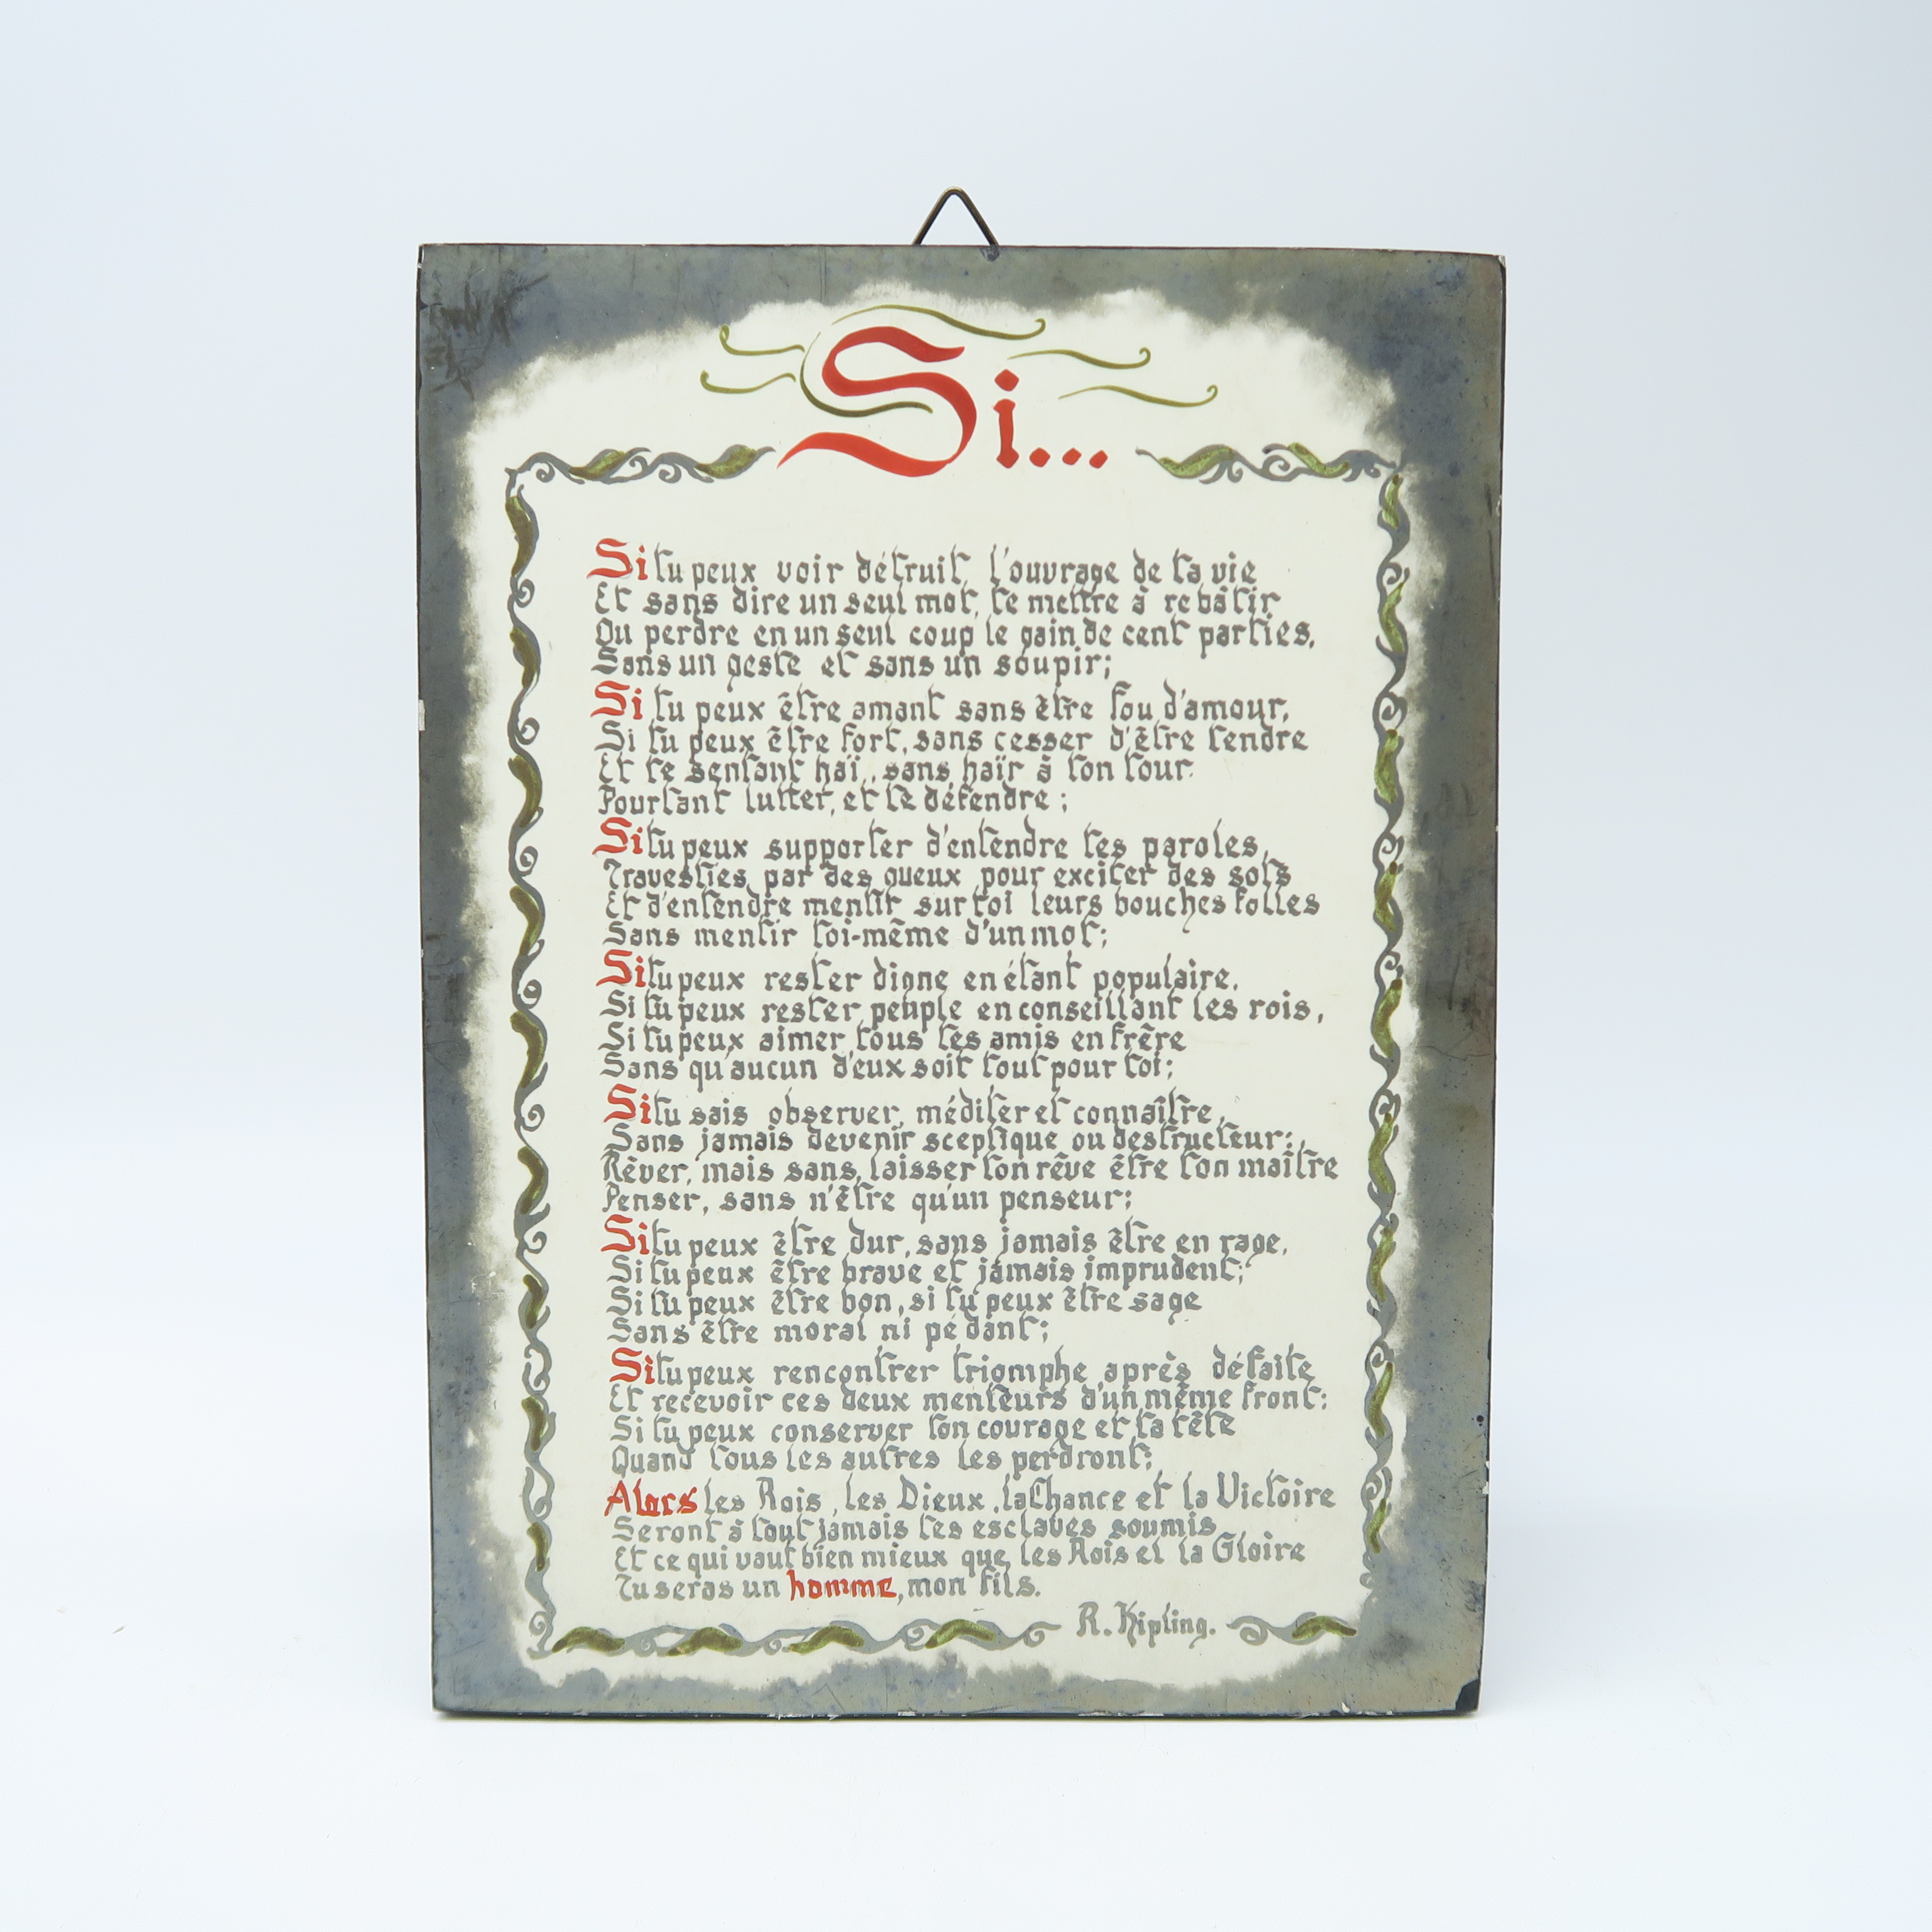 Si...
Si tu peux voir détruit l'ouvrage de ta vie
Et sans dire un seul mot, te mettre à rebâtir
Ou perdre en un seul coup le gain de cent parties,
Sans un geste et sans un soupir;
Si tu peux être amant sans être fou d'amour,
Si tu peux être fort, sans cesser d'être tendre
Et te sentant haï, sans haïr à ton tour
Pourtant lutter, et te défendre;
Si tu peux supporter d'entendre tes paroles,
Travesties par des gueux pour exciter des sots
Et d'entendre mentir sur toi leurs bouches folles
Sans mentir toi-même d'un mot;
Si tu peux rester digne en étant populaire,
Si tu peux rester peuple en conseillant les rois,
Si tu peux aimer tous tes amis en frère
Sans qu'aucun d'eux soit tout pour toi;
Si tu sais observer, méditer et connaître,
Sans jamais devenir sceptique ou destructeur;
Rêver, mais sans laisser ton rêve être ton maître
Penser, sans n'être qu'un penseur;
Si tu peux être dur, sans jamais être en rage,
Si tu peux être brave et jamais imprudent;
Si tu peux être bon, si tu peux être sage
Sans être moral ni pédant;
Si tu peux rencontrer triomphe après défaite
Et recevoir ces deux menteurs d'un même front;
Si tu peux conserver ton courage et ta tête
Quand tous les autres les perdront;
Alors les Rois, les Dieux, la Chance et la Victoire
Seront à tout jamais tes esclaves soumis
Et ce qui vaut bien mieux que les Rois et la Gloire
Tu seras un homme, mon fils.
R. Kipling.